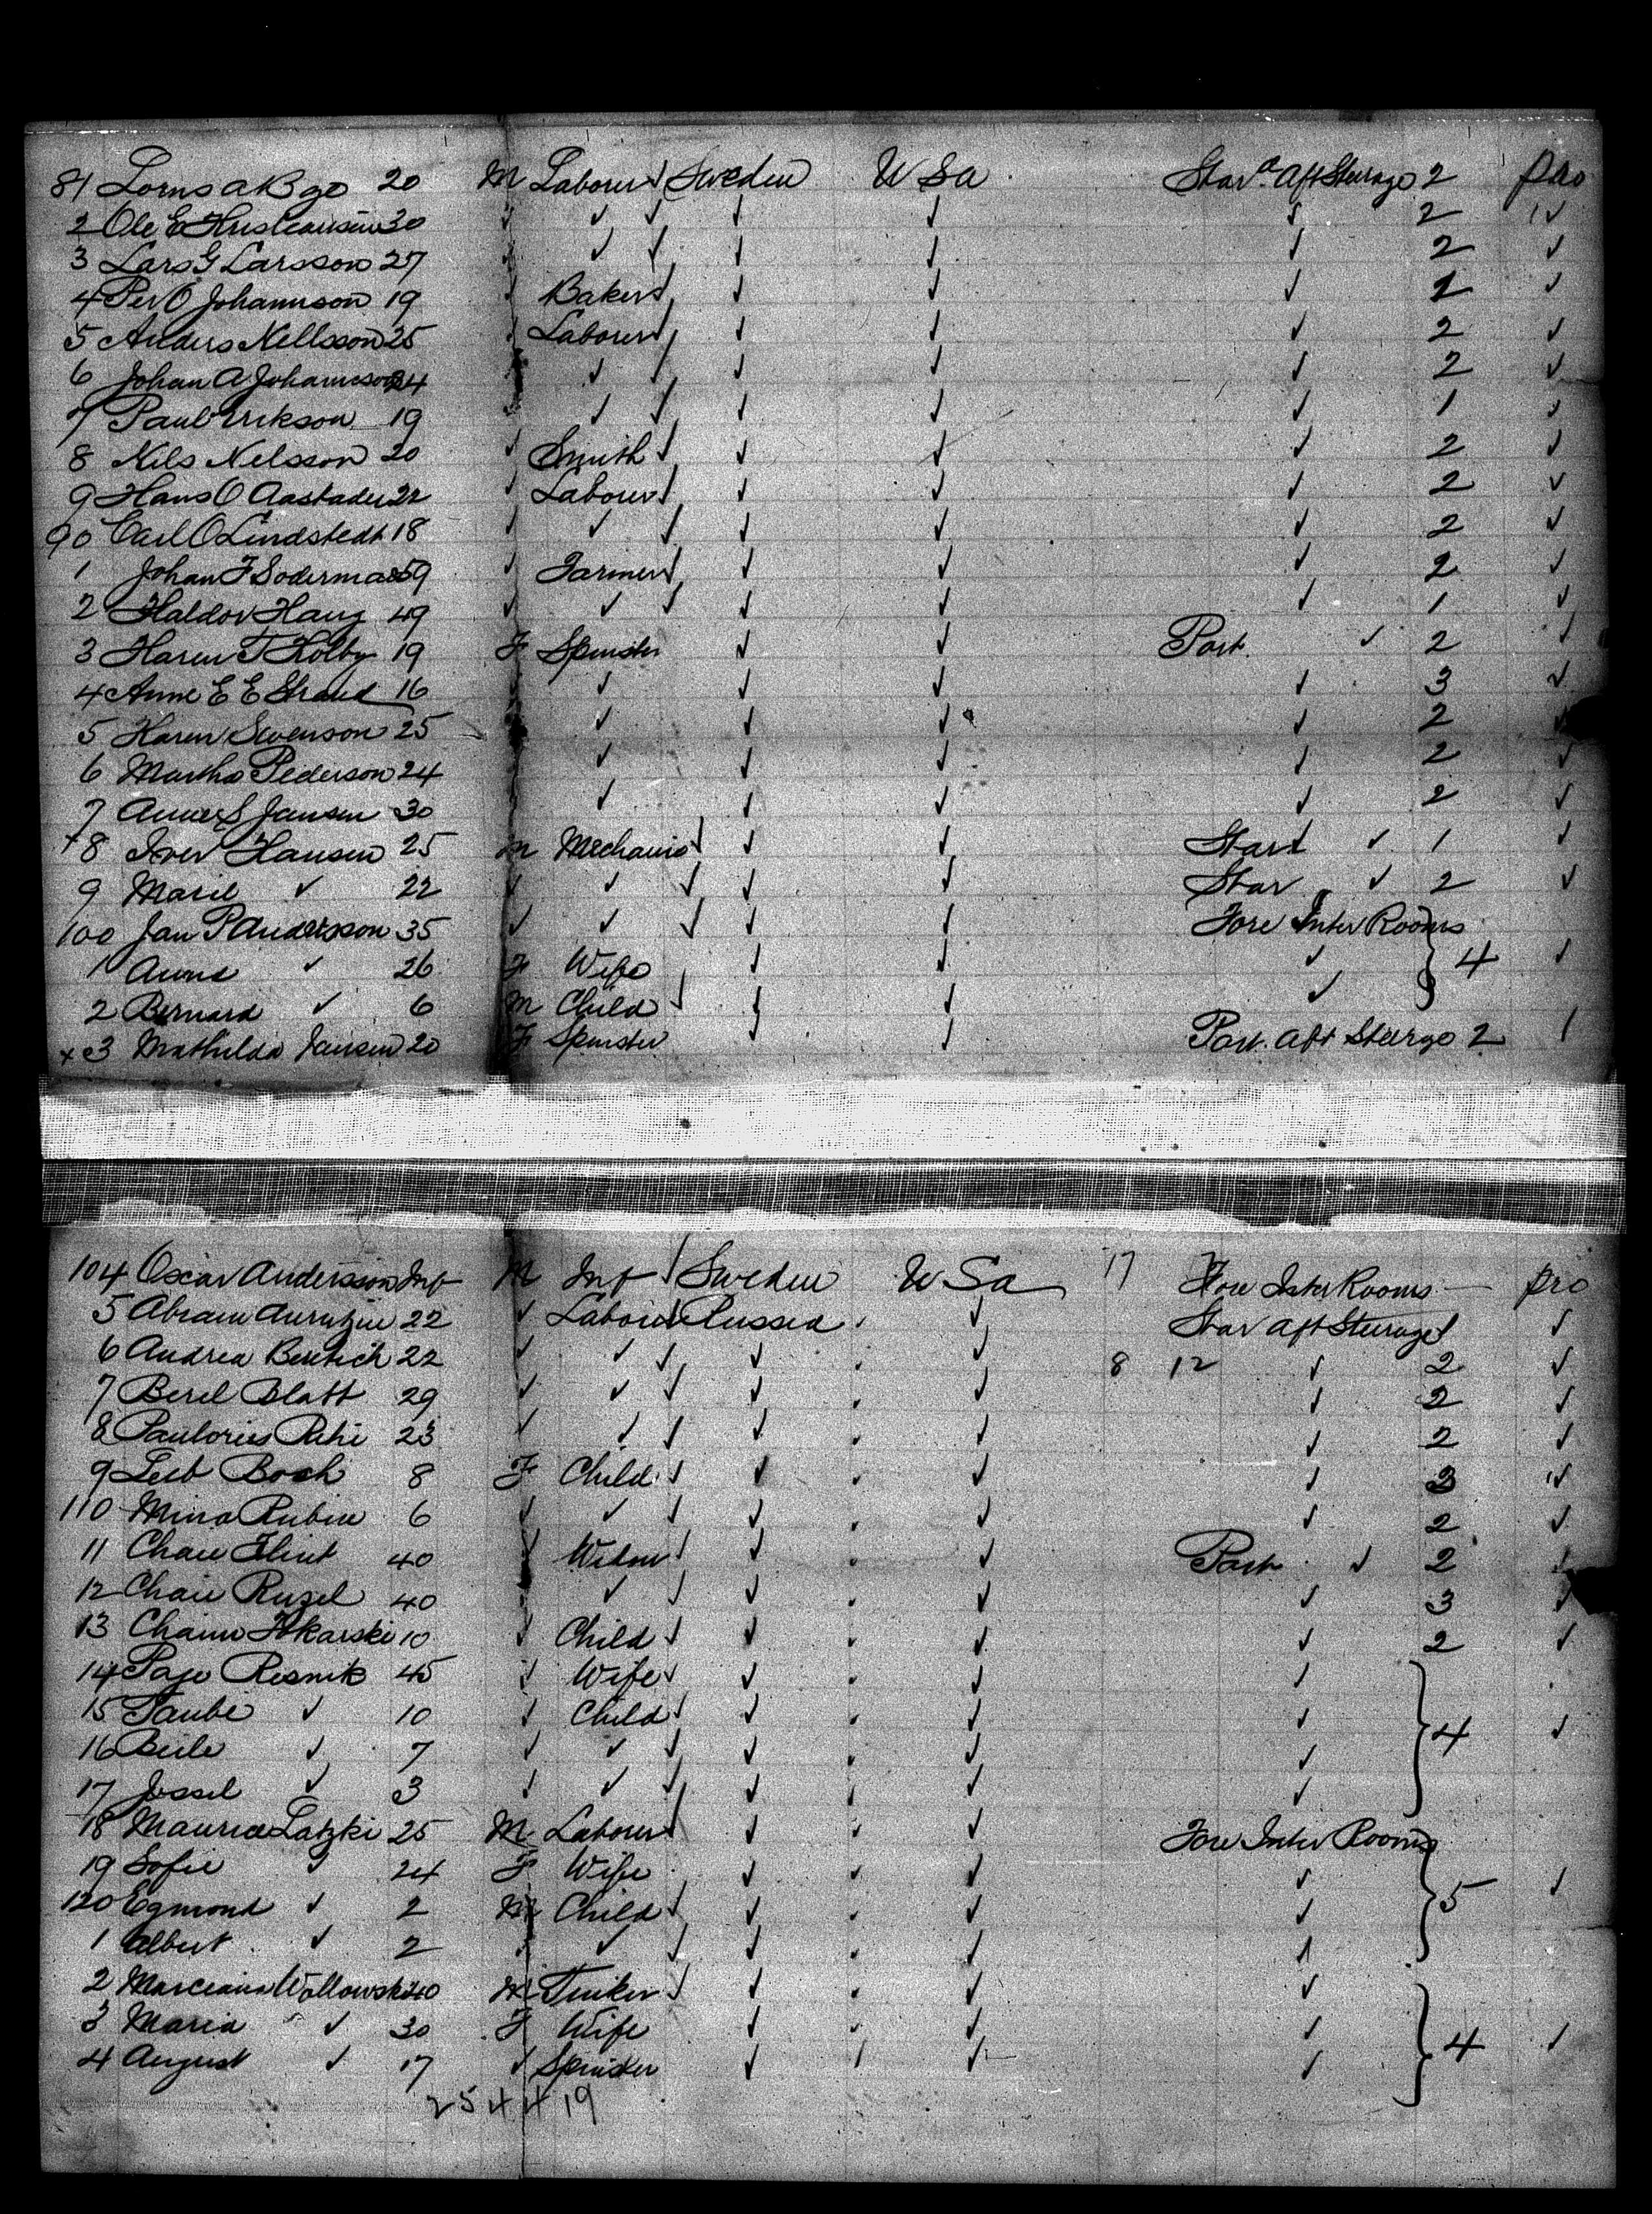 81 Lorns a Bgo 20 M Laborer ✓ Sweden U Sa Star^d Aft Steerage 2 pro
2 Ole E Khristiansen 30 ✓ ✓ ✓ ✓ ✓ ✓ 2 1✓
3 Lars G Larsson 27 ✓ ✓ ✓ ✓ ✓ ✓ 2 ✓
4 Per O Johannson 19 ✓ Baker ✓ ✓ ✓ ✓ 2 ✓
5 Anders Nellsson 25 ✓ Laborer ✓ ✓ ✓ ✓ 2 ✓
6 Johan A Johannson 24 ✓ ✓ ✓ ✓ ✓ 2 ✓
7 Paul Erikson 19 ✓ ✓ ✓ ✓ ✓ 1 ✓
8 Nils Nelsson 20 ✓ Smith ✓ ✓ ✓ ✓ 2 ✓
9 Hans O Aastader 22 ✓ Laborer ✓ ✓ ✓ ✓ 2 ✓
90 Carl O Lindstedt 18 ✓ ✓ ✓ ✓ ✓ ✓ 2 ✓
1 Johan F Soderman 59 ✓ Farmer ✓ ✓ ✓ ✓ 2 ✓
2 Haldor Haug 49 ✓ ✓ ✓ ✓ ✓ ✓ 1 ✓
3 Karen T Kolby 19 F Spinster ✓ ✓ Port. ✓ 2 ✓
4 Anne E E Strand 16 ✓ ✓ ✓ ✓ ✓ 3 ✓
5 Karen Swenson 25 ✓ ✓ ✓ ✓ 2 ✓
6 Martha Pederson 24 ✓ ✓ ✓ ✓ 2 ✓
7 Anna S Jansen 30 ✓ ✓ ✓ ✓ 2 ✓
+8 Iver Hansen 25 m Mechanic ✓ ✓ ✓ Star ✓ 1 ✓
9 Marie ✓ 22 ✓ ✓ ✓ ✓ ✓ Star ✓ 2 ✓
100 Jan P Andersson 35 ✓ ✓ ✓ ✓ ✓ Fore Inter Rooms
1 Anna ✓ 26 F Wife ✓ ✓ ✓ 4 ✓
2 Bernard ✓ 6 M Child ✓ ✓ ✓ ✓
x 3 Mathilda Jansen 20 F Spinster ✓ ✓ Port. Aft Steerge 2 1
104 Oscar Andersson Inf M Inf ✓ Sweden U Sa 17 Fore Inter Rooms pro
5 Abram 22 ✓ Laborer Russia ✓ Star Aft Steerage 1 ✓
6 Andrea 22 ✓ ✓ ✓ ✓ ✓ 8 12 ✓ 2 ✓
7 Berel Blatt 29 ✓ ✓ ✓ ✓ ✓ ✓ 2 ✓
8 23 ✓ ✓ ✓ ✓ ✓ ✓ 2 ✓
9 Leib Boch 8 F Child ✓ ✓ ✓ ✓ 3 ✓
110 Mina Rubin 6 ✓ ✓ ✓ ✓ ✓ ✓ 2 ✓
11 Chaie Flint 40 ✓ Widow ✓ ✓ ✓ Port. ✓ 2 ✓
12 Chaie Rugel 40 ✓ ✓ ✓ ✓ ✓ 3 ✓
13 Chaim Tokarski 10 ✓ Child ✓ ✓ ✓ ✓ 2 ✓
14 Paje Resnik 45 ✓ Wife ✓ ✓ ✓ ✓
15 Taube ✓ 10 ✓ Child ✓ ✓ ✓ ✓ 4 ✓
16 Beile ✓ 7 ✓ ✓ ✓ ✓ ✓ ✓
17 Jossel ✓ 3 ✓ ✓ ✓ ✓ ✓ ✓
18 Maurice Latzki 25 M Laborer ✓ ✓ ✓ Fore Inter Rooms
19 Sofie ✓ 24 F Wife ✓ ✓ ✓ 5 ✓
120 Egmond ✓ 2 M Child ✓ ✓ ✓ ✓
1 Albert ✓ 2 ✓ ✓ ✓ ✓ ✓ ✓
2 Marciana Wollowski 40 M Tinker ✓ ✓ ✓ ✓
3 Maria ✓ 30 F Wife ✓ ✓ ✓ 4 ✓
4 August ✓ 17 ✓ Spinster ✓ ✓ ✓
25 4 4 19